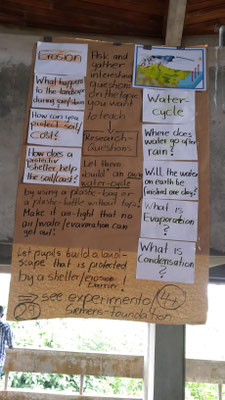 Erosion
What happens
to the landscape
during rain/storm
How can you
protect soil/
coast?
How does a
protective
shelter help
the soil/coast?
Ask and
gather
interesting
question
on the topic
you want
to teach
Research-
Questions
Let them
build an own
water-cycle
by using a plastic-bag or
a plastic-bottle without top!
Make it air-tight that no
air/water/evaporation can
get out!
Water-
cycle
Where does
water go after
rain?
Will the water
on earth be
finished one day?
What is
Evaporation?
What is
Condensation?
Let pupils build a land-
scape that is protected
by a shelter/erosion
barrier!
⇒ see experimento/
Siemens-foundation